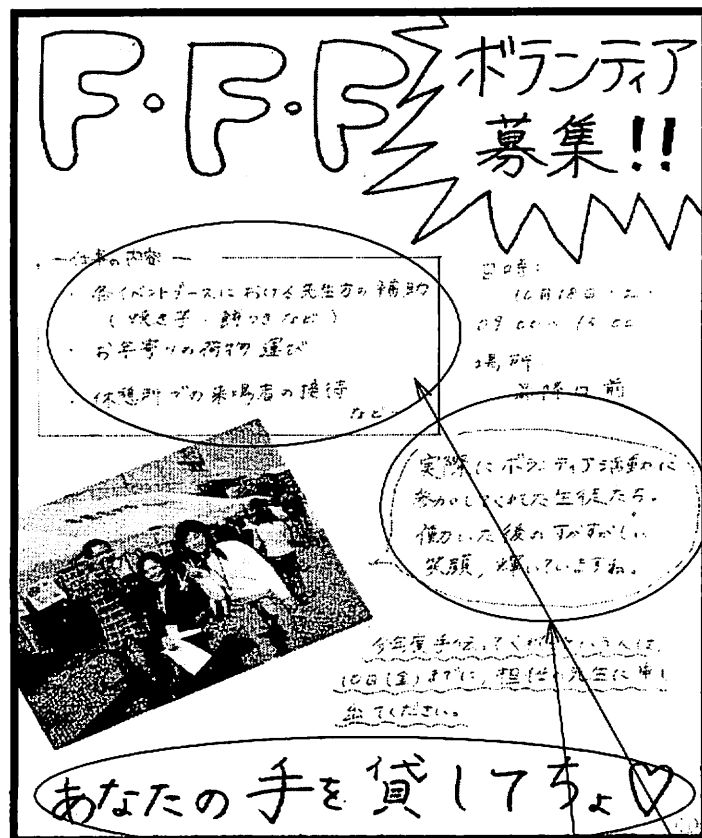 F・F・F
ボランティア
募集!!
ー仕事の内容ー
・各イベントブースにおける先生方の補助
(焼き芋・餅つきなど)
・お年寄りの荷物運び
・休憩所での来場者の接待
など
日時:
09:00〜15:00
場所
前
実際にボランティア活動に
参加してくれた生徒たち。
働いた後のすがすがしい
笑顔,輝いていますね。
今年度手伝ってくれるという人は
10日(金)までに,担任の先生に申し
出てください。
あなたの手を貸してちょ♡